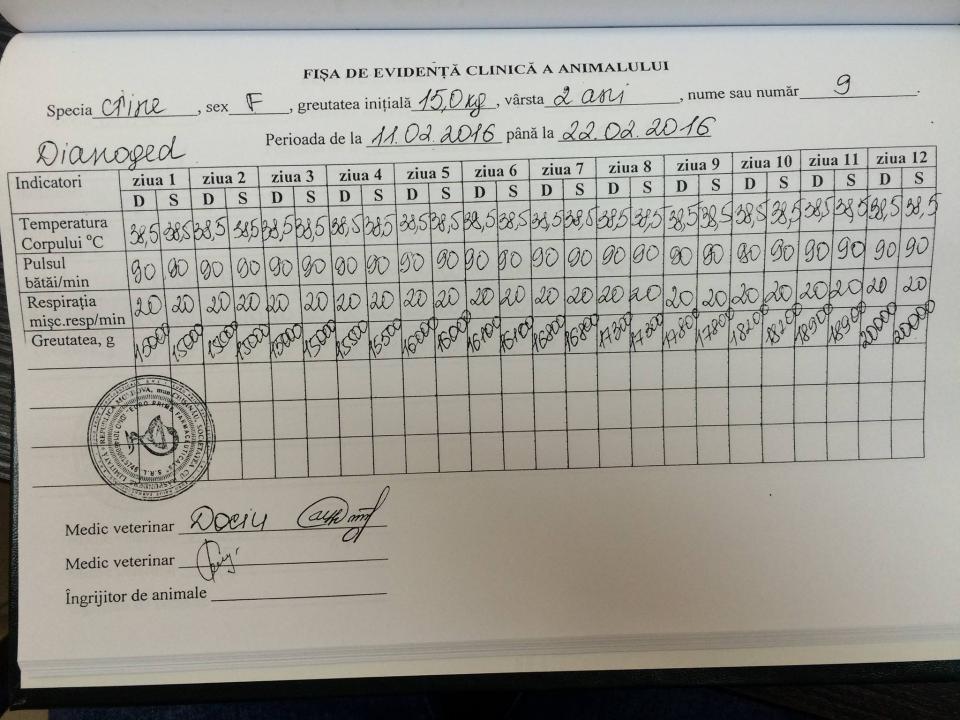 FIȘA DE EVIDENȚĂ CLINICĂ A ANIMALULUI
Specia câine, sex F, greutatea inițială 15,0 kg, vârsta 2 ani, nume sau număr 9.
Perioada de la 11.02.2016 până la 22.02.2016
Dianoged
Indicatori ziua 1 ziua 2 ziua 3 ziua 4 ziua 5 ziua 6 ziua 7 ziua 8 ziua 9 ziua 10 ziua 11 ziua 12
D S D S D S D S D S D S D S D S D S D S D S D S
Temperatura Corpului °C 38,5 38,5 38,5 38,5 38,5 38,5 38,5 38,5 38,5 38,5 38,5 38,5 38,5 38,5 38,5 38,5 38,5 38,5 38,5 38,5 38,5 38,5 38,5 38,5
Pulsul bătăi/min 90 90 90 90 90 90 90 90 90 90 90 90 90 90 90 90 90 90 90 90 90 90 90 90
Respirația mișc.resp/min 20 20 20 20 20 20 20 20 20 20 20 20 20 20 20 20 20 20 20 20 20 20 20 20
Greutatea, g 15000 15000 15000 15000 15000 15000 15500 15500 16000 16000 16100 16100 16800 16800 17300 17300 17800 17800 18200 18200 18900 18900 20000 20000
REPUBLICA MOLDOVA, mun. CHIȘINĂU, SOCIETATEA CU RĂSPUNDERE LIMITATĂ
"EURO PRIME FARMACEUTICALS" S.R.L.
Medic veterinar Dociu
Medic veterinar
Îngrijitor de animale